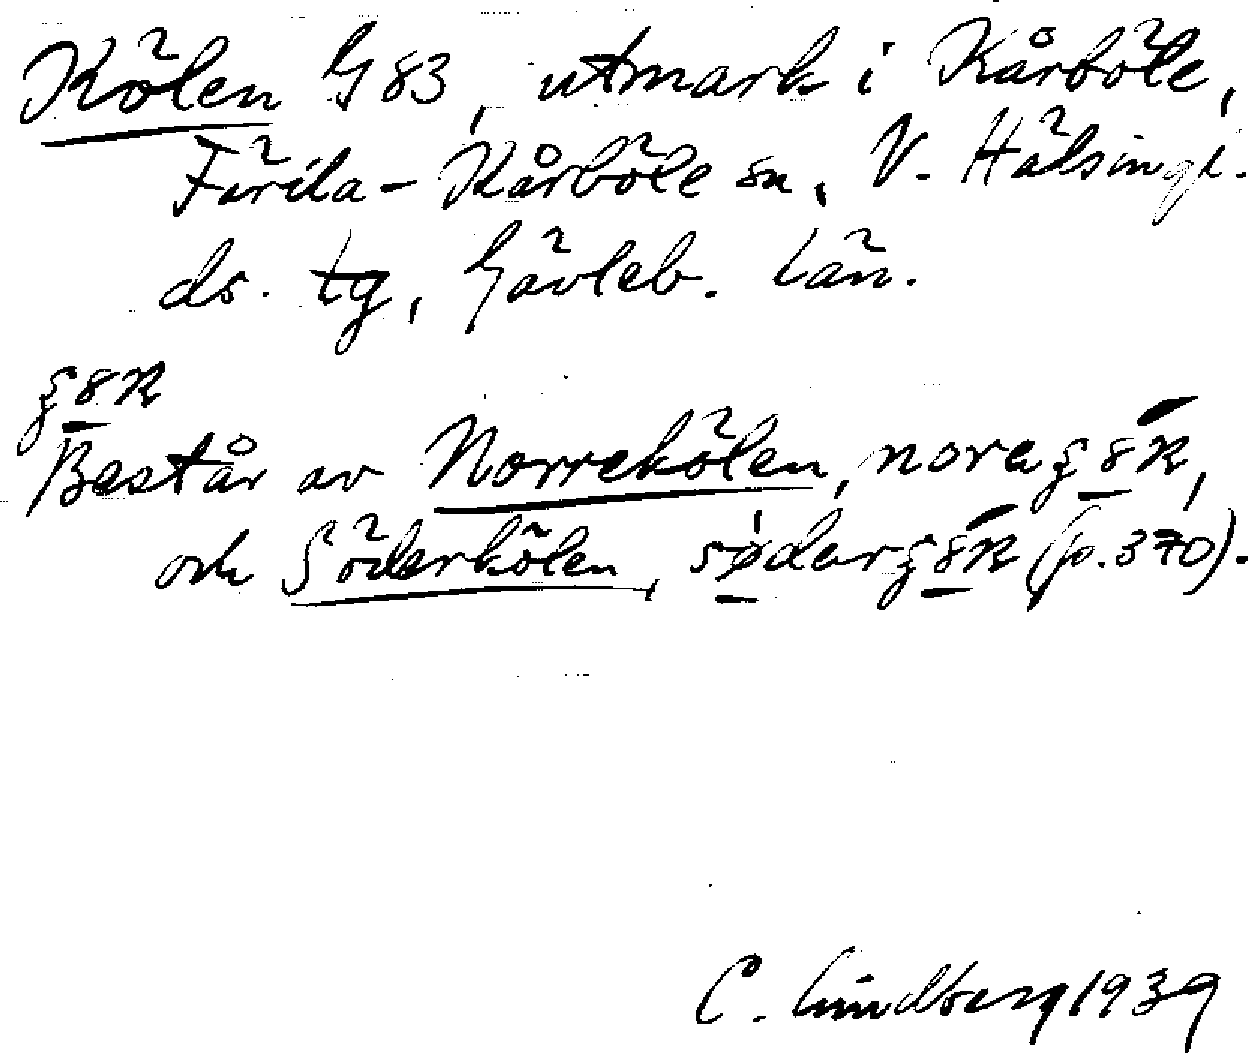 Kölen G 83, utmark i Kårböle,
Färila-Kårböle sn, V. Hälsingl.
ds. tg, Gävleb. län.
Består av Norrekölen,
och Söderkölen, (p. 370).
C. Lindberg 1939